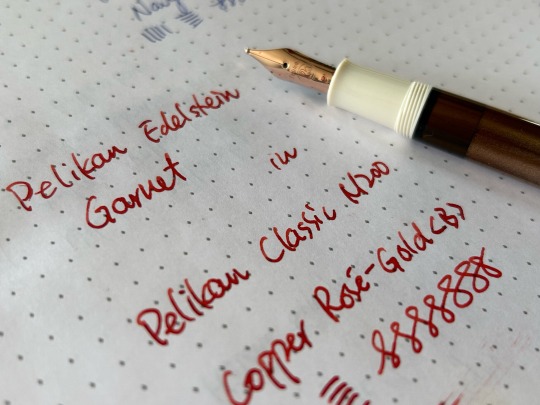 Navy
Pelikan Edelstein
Garnet
in
Pelikan Classic M200
Copper Rosé-Gold (B)
8888888